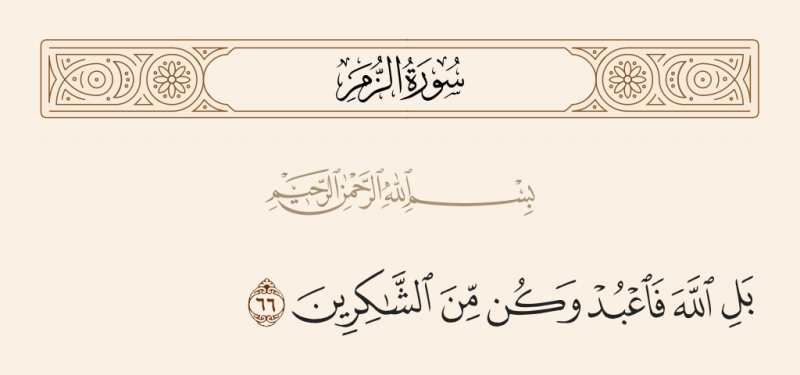 سُورَةُ الزُّمَرِ
بِسْمِ ٱللَّهِ ٱلرَّحْمَٰنِ ٱلرَّحِيمِ
بَلِ ٱللَّهَ فَٱعْبُدْ وَكُن مِّنَ ٱلشَّٰكِرِينَ ٦٦